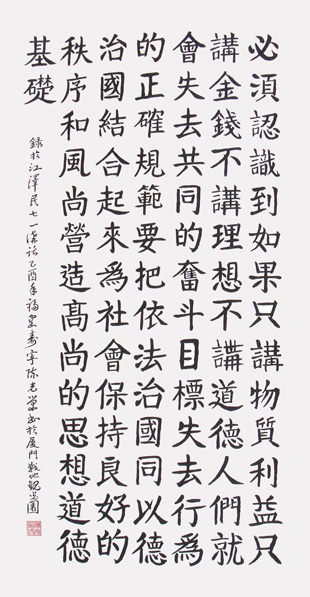 必須認識到如果只講物質利益只
講金錢不講理想不講道德人們就
會失去共同的奮斗目標失去行爲
的正確規範要把依法治國同以德
治國結合起來爲社會保持良好的
秩序和風尚營造髙尚的思想道德
基礎
録於江澤民七一講話乙酉年福建壽寧陳榮書於厦門園